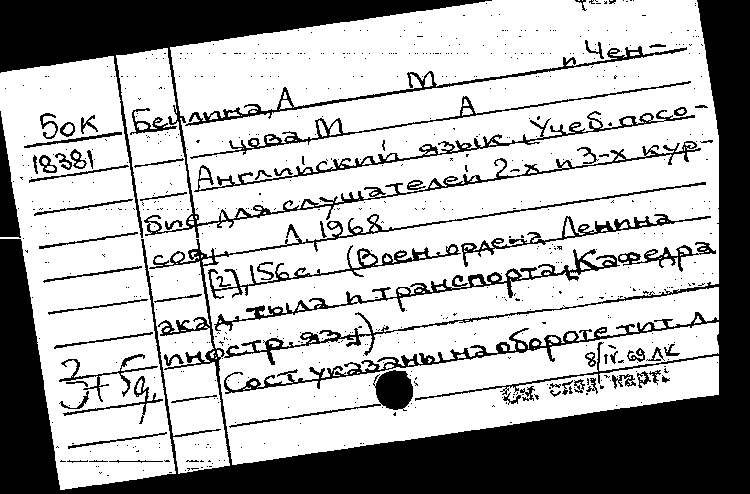 Бок
18381
Бейлина, А М и Чен-
цова, М А
Английский язык. Учеб. посо-
бие для слушателей 2-х и 3-х кур-
сов. Л, 1968.
[2], 156 с. (Воен. ордена Ленина
акад. тыла и транспорта. Кафедра
иностр. яз.)
Сост. указаны на обороте тит. л.
8/IV.69 ЛК
См. след. карт.